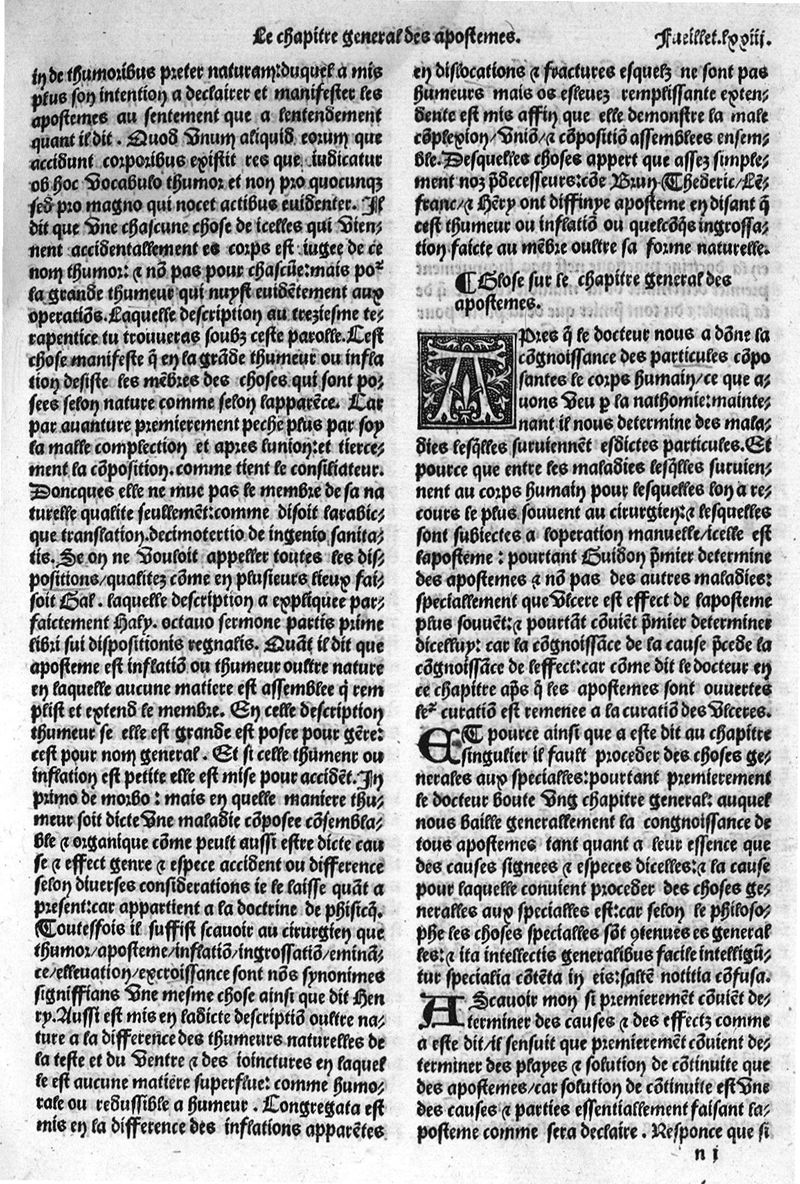 Le chapitre general des apostemes.
Fueillet.lxxiij.
in de thumoribus preter naturam:duquel a mis
plus son intention a declairer et manifester les
apostemes au sentement que a lentendement
quant il dit . Quod Vnum aliquid eorum que
accidunt corporibus existit res que iudicatur
ob hoc Vocabulo thumor et non pro quocunqꝫ
sed pro magno qui nocet actibus euidenter. Il
dit que Vne chascune chose de icelles qui Vien-
nent accidentallement es corps est iugee de ce
nom thumor: ⁊ nō pas pour chascūe:mais poʳ
la grande thumeur qui nuyst euidētement aux
operatiōs.Laquelle description au treziesme te-
rapentice tu trouueras soubz ceste parolle.Cest
chose manifeste q̄ en la grāde thumeur ou infla
tion desiste les mēbres des choses qui sont po-
sees selon nature comme selon lapparēce. Car
par auanture premierement peche plus par soy
la malle complection et apres lunion:et tierce-
ment la cōposition.comme tient le consiliateur.
Doncques elle ne mue pas le membre de sa na
turelle qualite seullemēt:comme disoit larabic-
que translation.decimotertio de ingenio sanita-
tis.Se on ne Vouloit appeller toutes les dis-
positions/qualitez cōme en plusieurs lieux fai-
soit Gal. laquelle description a expliquee par-
faictement Haly. octauo sermone partis prime
libri sui dispositionis regnalis. Quāt il dit que
aposteme est inflatiō ou thumeur oultre nature
en laquelle aucune matiere est assemblee q̇ rem
plist et extend le membre. En celle description
thumeur se elle est grande est posee pour gēre:
cest pour nom general . Et si celle thumeur ou
inflation est petite elle est mise pour accidēt.In
primo de morbo : mais en quelle maniere thu-
meur soit dicte Vne maladie cōposee cōsembla-
ble ⁊ organique cōme peult aussi estre dicte cau
se ⁊ effect genre ⁊ espece accident ou difference
selon diuerses considerations ie le laisse quāt a
present:car appartient a la doctrine de phisicq̄.
Toutesfois il suffist scauoir au cirurgien que
thumor/aposteme/inflatiō/ingrossatiō/eminā-
ce/elleuation/excroissance sont nōs synonimes
signiffians Vne mesme chose ainsi que dit Hen
ry.Aussi est mis en ladicte descriptiō oultre na-
ture a la difference des thumeurs naturelles de
la teste et du Ventre ⁊ des ioinctures en laquel
le est aucune matiere superflue: comme humo-
rale ou reduissible a humeur . Congregata est
mis en la difference des inflations apparētes
en dislocations ⁊ fractures esquelz ne sont pas
humeurs mais os esleuez remplissante exten-
dente est mis affin que elle demonstre la male
cōplexion/Vniō/⁊ cōpositiō assemblees ensem-
ble.Desquelles choses appert que assez simple-
ment noz p̄decesseurs:cōe Brun/Thederic/Lē-
franc/⁊ Hēry ont diffinye aposteme en disant q̄
cest thumeur ou inflatiō ou quelcōqs ingrossa-
tion faicte au mēbre oultre sa forme naturelle.
¶Glose sur le chapitre general des
apostemes.
APres q̄ le docteur nous a dōne la
cōgnoissance des particules cōpo
santes le corps humain/ce que a-
uons Veu p la nathomie:mainte-
nant il nous determine des mala-
dies lesq̄lles suruiennēt esdictes particules.Et
pource que entre les maladies lesq̄lles suruien-
nent au corps humain pour lesquelles lon a re-
cours le plus souuent au cirurgien:⁊ lesquelles
sont subiectes a loperation manuelle/icelle est
laposteme : pourtant Guidon p̄mier determine
des apostemes ⁊ nō pas des autres maladies:
speciallement que Vlcere est effect de laposteme
plus souuēt:⁊ pourtāt cōuiēt p̄mier determiner
dicelluy: car la cōgnoissāce de la cause p̄cede la
cōgnoissāce de leffect:car cōme dit le docteur en
ce chapitre ap̄s q̄ les apostemes sont ouuertes
leʳ curatiō est remenee a la curatiō des Vlceres.
ET pource ainsi que a este dit au chapitre
singulier il fault proceder des choses ge-
nerales aux specialles:pourtant premierement
le docteur boute Vng chapitre general: auquel
nous baille generallement la congnoissance de
tous apostemes tant quant a leur essence que
des causes signees ⁊ especes dicelles:⁊ la cause
pour laquelle conuient proceder des choses ge-
neralles aux specialles est:car selon le philoso-
phe les choses specialles sōt ꝯtenues es general
les:⁊ ita intellectis generalibus facile intelligū-
tur specialia cōtēta in eis:saltē notitia cōfusa.
AScauoir mon si premieremēt cōuiēt de-
terminer des causes ⁊ des effectz comme
a este dit/il sensuit que premieremēt cōuient de-
terminer des playes ⁊ solution de cōtinuite que
des apostemes/car solution de cōtinuite est Vne
des causes ⁊ parties essentiallement faisant la-
posteme comme sera declaire . Responce que si
n j